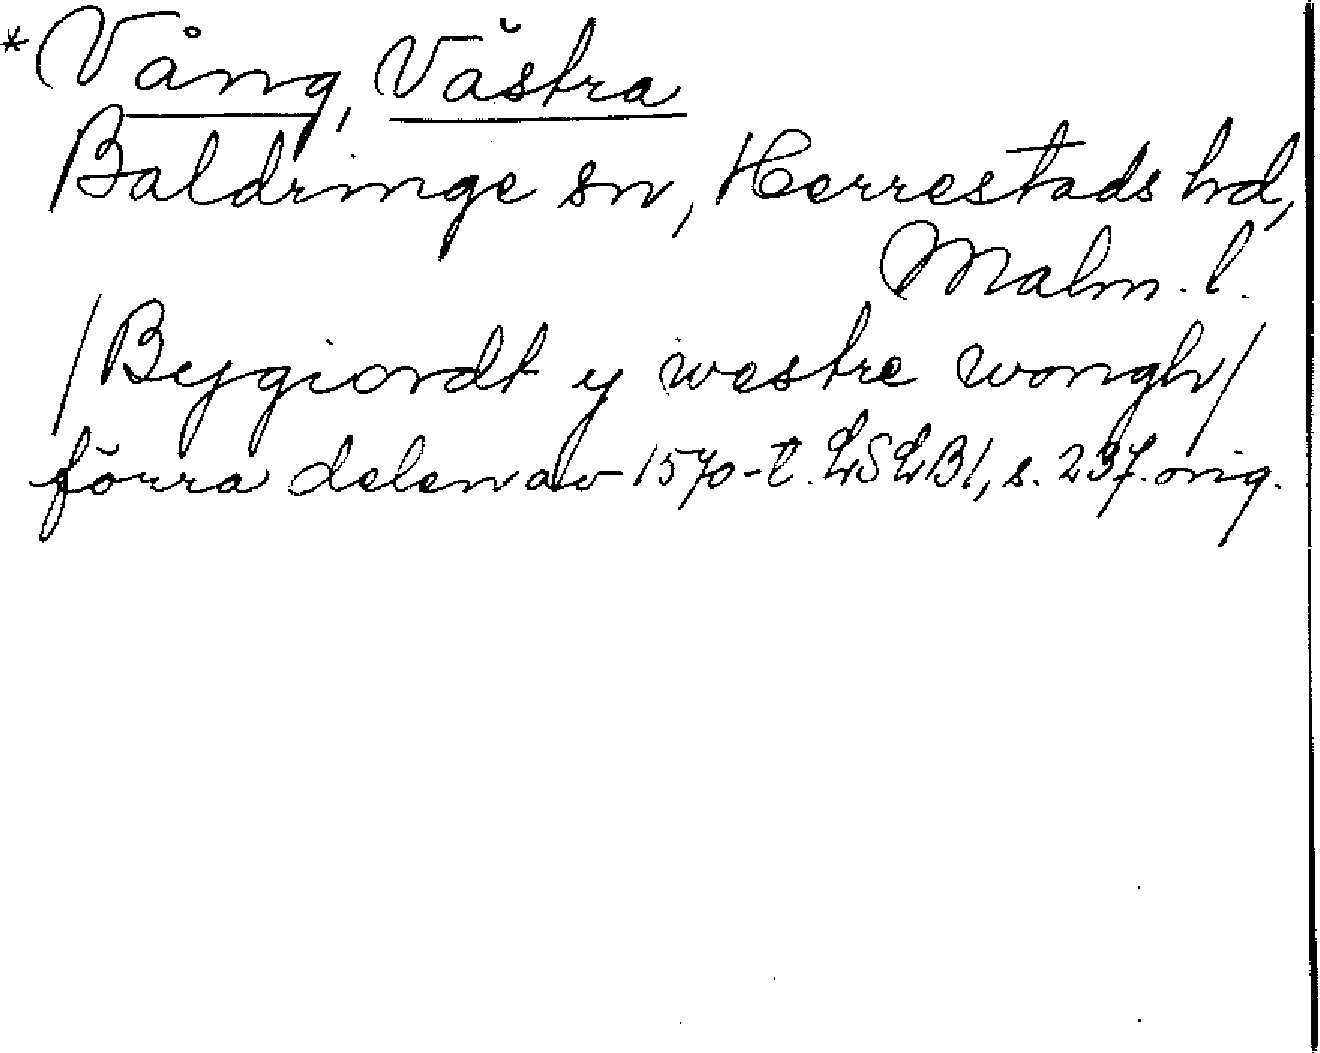 *Vång, Västra
Baldringe sn, Herrestads hd,
Malm. l.
/Bygiordt y westre wongh/
förra delen av 1570-t. LSLB1, s. 237. orig.